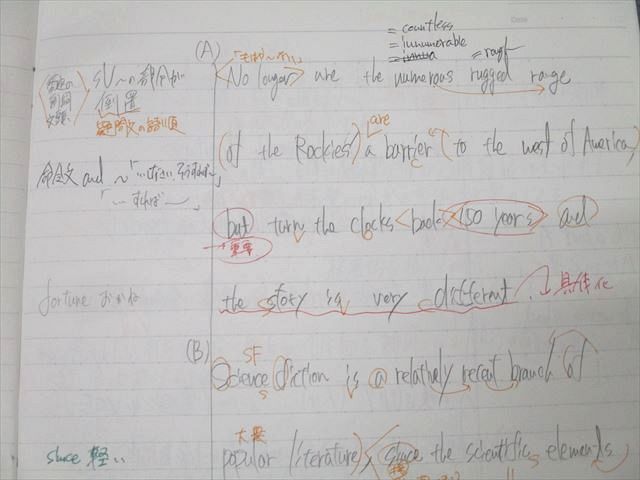 (A)
= countless
= innumerable
「もはや〜ない」
= rough
No longer are the numerous rugged range
SV〜の部分が
倒置
疑問文の語順
are
(of the Rockies) a barrier (to the west of America)
命令文 and 〜「…しなさい、そうすれば〜」
「…すれば〜」
but turn the clocks back 150 years and
→重要
fortune おかね
the story is very different. 具体化
(B)
SF
Science fiction is a relatively recent branch of
大衆
popular literature, since the scientific elements
since 軽い